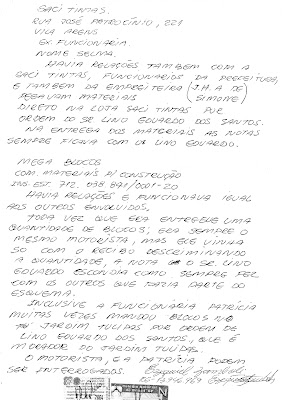 SACI TINTAS.
RUA JOSÉ PATROCÍNIO, 221
VILA ARENS
EX. FUNCIONARIA.
NOME SELMA.
HAVIA RELAÇÕES TAMBEM COM A
SACI TINTAS, FUNCIONARIOS DA PREFEITURA,
E TAMBEM DA EMPREITEIRA (J.A.A DE
PEGAVAM MATERIAIS SIMONE)
DIRETO NA LOJA SACI TINTAS POR
ORDEM DO SR LINO EDUARDO DOS SANTOS.
NA ENTREGA DOS MATERIAIS AS NOTAS
SEMPRE FICAVA COM O LINO EDUARDO.
MEGA BLOCOS
COM. MATERIAIS P/ CONSTRUÇÃO
INS. EST. 712. 038 841/0001-20
HAVIA RELAÇÕES E FUNCIONAVA IGUAL
AOS OUTROS ENVOLVIDOS.
TODA VEZ QUE ERA ENTREGUE UMA
QUANTIDADE DE BLOCOS, ERA SEMPRE O
MESMO MOTORISTA, MAS ELE VINHA
SO COM O RECIBO DESCRIMINANDO
A QUANTIDADE, A NOTA O SR. LINO
EDUARDO ESCONDIA COMO SEMPRE FEZ
COM OS OUTROS QUE FAZIA PARTE DO
ESQUEMA.
INCLUSIVE A FUNCIONARIA PATRÍCIA
MUITAS VEZES MANDOU BLOCOS NO
JARDIM TULIPAS POR ORDEM DE
LINO EDUARDO DOS SANTOS, QUE É
MORADOR DO JARDIM TULIPAS.
O MOTORISTA, E A PATRÍCIA PODEM
SER INTERROGADOS.